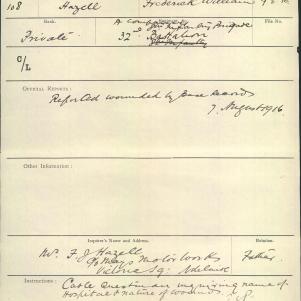 108 Hazell Frederick William
Rank. File No.
A Company
Private 32nd Battalion
C/L
OFFICIAL REPORTS :
Reported wounded by Base records
7. August 1916
Other Information :
Inquirer's Name and Address. Relation.
Mr. F J Hazell Father
Motor Works
Victoria Sq. Adelaide
Instructions : Cable Question an name of
Hospital & nature of wounds.